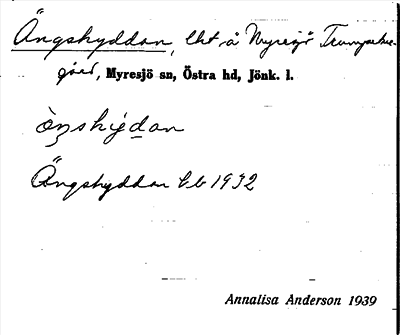 Ängshyddan, lht å Myresjö Trumpetare-
gård, Myresjö sn, Östra hd, Jönk. l.
ònshỳdan
Ängshyddan Eb 1932
Annalisa Anderson 1939